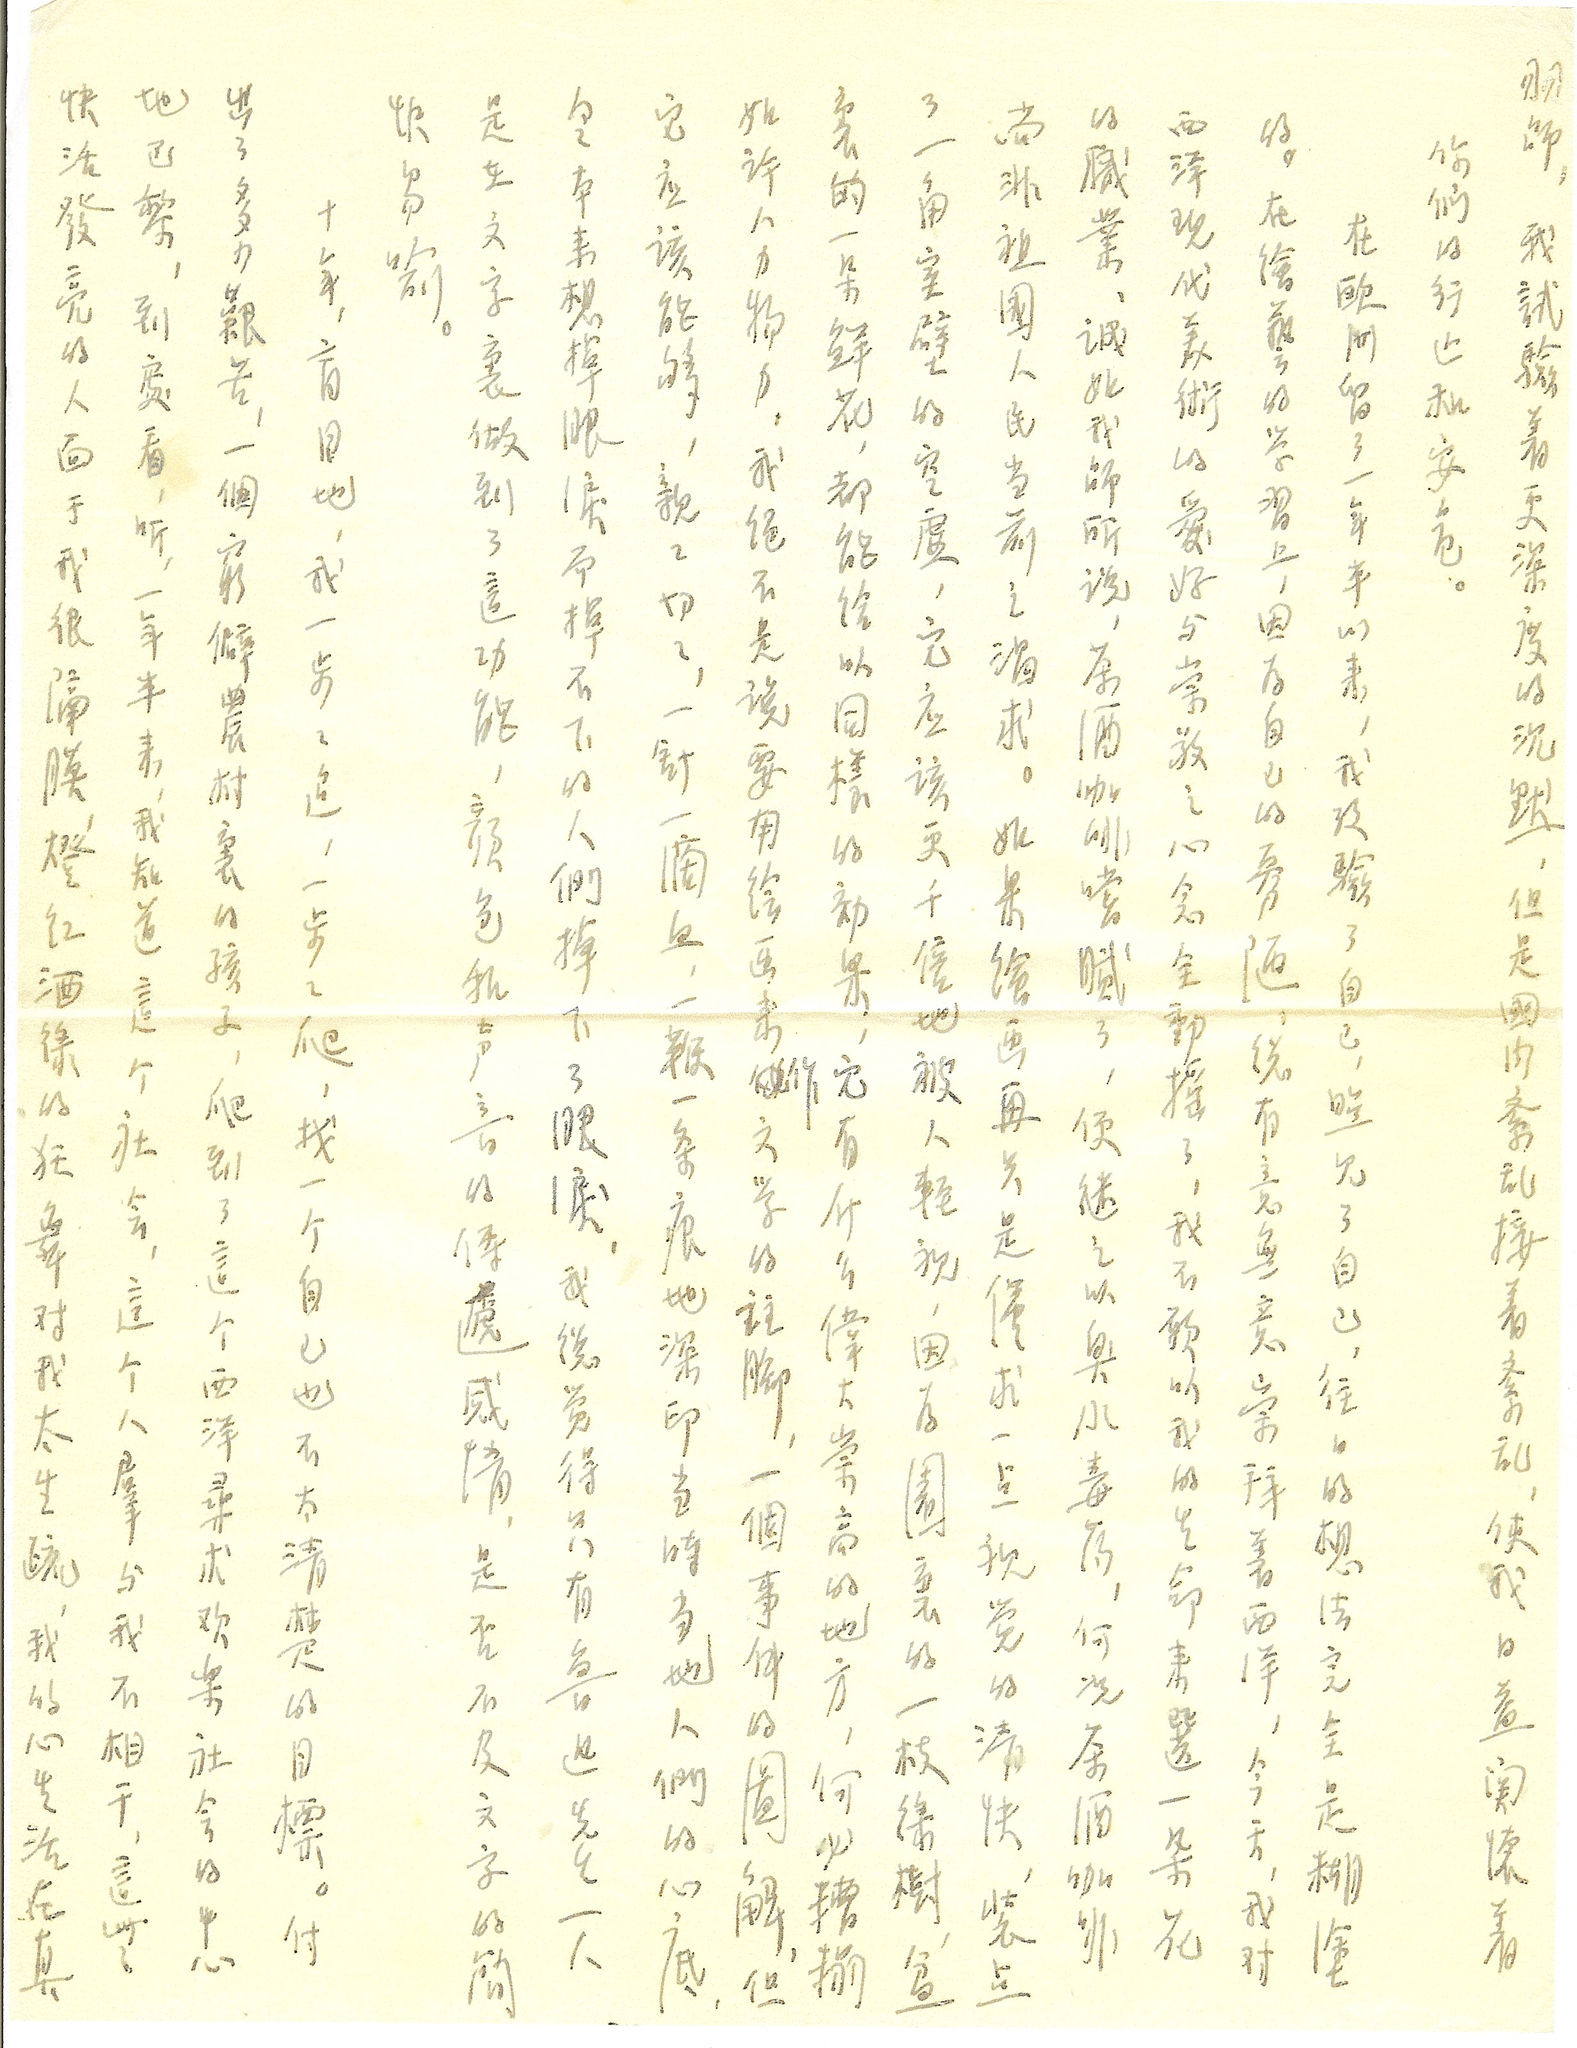 羽師，我試驗着更深度的沉默，但是國内紊乱接着紊乱，使我日益関懷着
你們的行止和安危。
在歐洲留了一年半以来，我攷驗了自己，照見了自己，往日的想法完全是糊塗
的。在繪藝的学習上，因为自己的旁陋，総有意無意崇拜着西洋，今天，我对
西洋現代美術的愛好与崇敬之心念全動摇了，我不願以我的生命来選一朵花
的職業、誠如我師所説，茶酒咖啡嘗膩了，便継之以臭水毒药，何况茶酒咖啡
尚非祖國人民当前之渴求。如果繪画再只是僅求一点視覚的清快，装点
了一角室壁的空虚，它应該更千倍地被人輕視，因为園裏的一枝緑樹，盆
裏的一朵鮮花，都能給以同樣的効果，它有什么偉大崇高的地方，何必糟榻
如許人力物力，我絕不是説要用繪画来作文学的註脚，一個事件的圖解，但
它应該能够，親〻切〻，一針一滴血，一鞭一条痕地深印当時当地人們的心底，
令本来想掉眼淚而掉不下的人們掉下了眼淚，我総覚得只有魯迅先生一人
是在文字裏做到了這功能，顔色和声音的傳遞感情，是否不及文字的簡
快易喻。
十年，盲目地，我一步〻追，一步〻爬，找一个自己也不太清楚的目標。付
出了多少艱苦，一個窮僻農村裏的孩子，爬到了這个西洋尋求欢樂社会的中心
地巴黎，到處看，听，一年半来，我知道這个社会，這个人羣与我不相干，這些
快活發亮的人面于我很隔膜，燈紅酒緑的狂舞对我太生疏，我的心生活在真